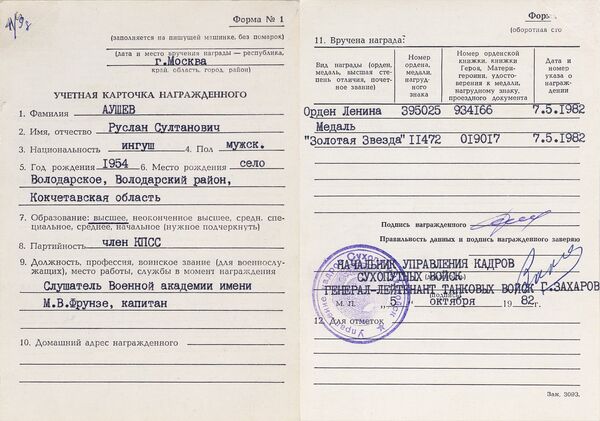 Форма № 1
(заполняется на пишущей машинке, без помарок)
(дата и место вручения награды — республика,
г.Москва
край, область, город, район)
УЧЕТНАЯ КАРТОЧКА НАГРАЖДЕННОГО
1. Фамилия АУШЕВ
2. Имя, отчество Руслан Султанович
3. Национальность ингуш 4. Пол мужск.
5. Год рождения 1954 6. Место рождения село
Володарское, Володарский район,
Кокчетавская область
7. Образование: высшее, неоконченное высшее, средн. спе-
циальное, среднее, начальное (нужное подчеркнуть)
8. Партийность член КПСС
9. Должность, профессия, воинское звание (для военнослу-
жащих), место работы, службы в момент награждения
Слушатель Военной академии имени
М.В.Фрунзе, капитан
10. Домашний адрес награжденного
Форм
(оборотная сто
11. Вручена награда:
Вид награды (орден, медаль, высшая степень отличия, почетное звание)
Номер ордена, медали, нагрудного знака
Номер орденской книжки, книжки Героя, Матери-героини, удостоверения к медали, нагрудному знаку, проездного документа
Дата и номер указа о награждении
Орден Ленина 395025 934166 7.5.1982
Медаль
"Золотая Звезда" II472 019017 7.5.1982
Подпись награжденного
Правильность данных и подпись награжденного заверяю
НАЧАЛЬНИК УПРАВЛЕНИЯ КАДРОВ
СУХОПУТНЫХ ВОЙСК
ГЕНЕРАЛ-ЛЕЙТЕНАНТ ТАНКОВЫХ ВОЙСК Г.ЗАХАРОВ
М. П. „5 октября 1982 г.
12. Для отметок
Зак. 3093.